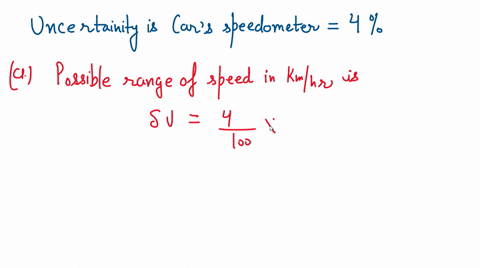 Uncertainity is Car's speedometer = 4 %
(a.) Possible range of speed in Km/hr is
δV = 4/100 x